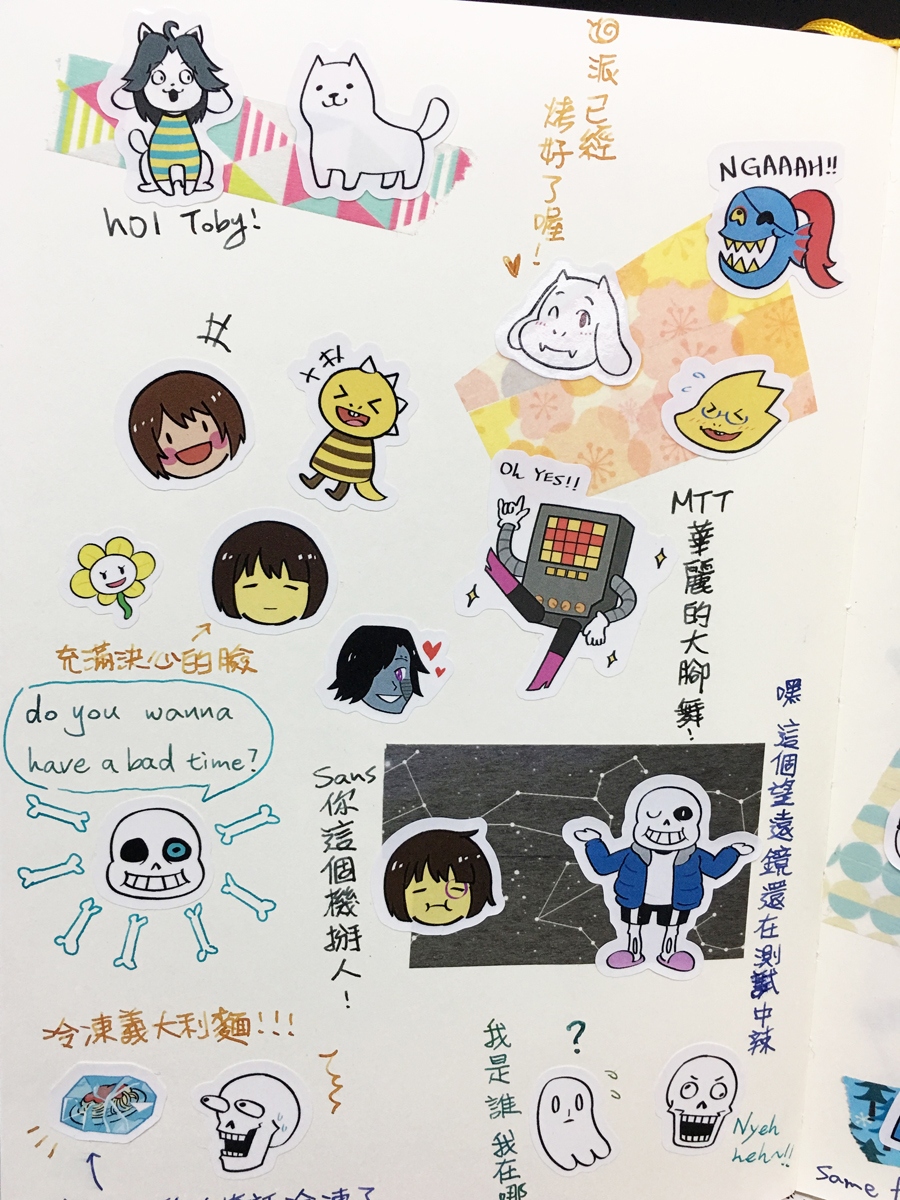 hOI Toby!
派已經
烤好了喔!
NGAAAH!!
#
Oh YES!!
MTT
華麗的大腳舞!
充滿決心的臉
do you wanna
have a bad time?
Sans
你這個機掰人!
嘿 這個望遠鏡還在測試中辣
冷凍義大利麵!!!
我是誰 我在哪
?
Nyeh
heh~!!
冷凍了
Same